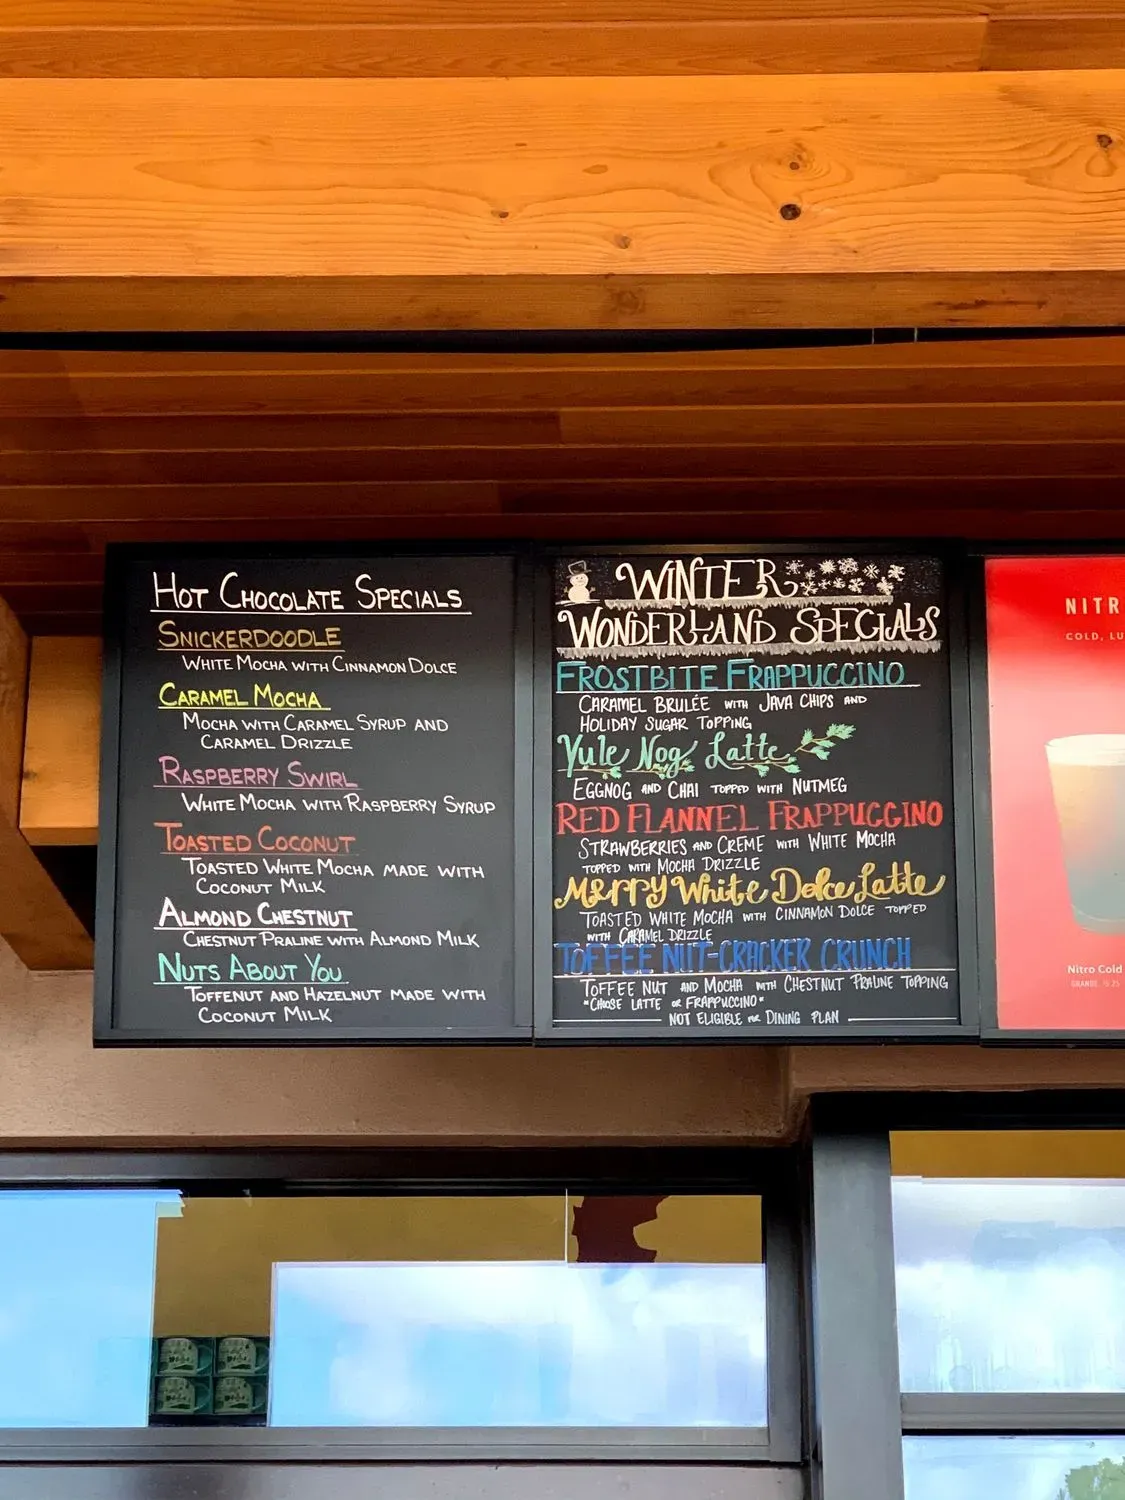 HOT CHOCOLATE SPECIALS
SNICKERDOODLE
WHITE MOCHA WITH CINNAMON DOLCE
CARAMEL MOCHA
MOCHA WITH CARAMEL SYRUP AND
CARAMEL DRIZZLE
RASPBERRY SWIRL
WHITE MOCHA WITH RASPBERRY SYRUP
TOASTED COCONUT
TOASTED WHITE MOCHA MADE WITH
COCONUT MILK
ALMOND CHESTNUT
CHESTNUT PRALINE WITH ALMOND MILK
NUTS ABOUT YOU
TOFFENUT AND HAZELNUT MADE WITH
COCONUT MILK
WINTER
WONDERLAND SPECIALS
FROSTBITE FRAPPUCCINO
CARAMEL BRULÉE WITH JAVA CHIPS AND
HOLIDAY SUGAR TOPPING
Yule Nog Latte
EGGNOG AND CHAI TOPPED WITH NUTMEG
RED FLANNEL FRAPPUCCINO
STRAWBERRIES AND CRÈME WITH WHITE MOCHA
TOPPED WITH MOCHA DRIZZLE
MERRY White Dolce Latte
TOASTED WHITE MOCHA WITH CINNAMON DOLCE TOPPED
WITH CARAMEL DRIZZLE
TOFFEE NUT-CRACKER CRUNCH
TOFFEE NUT AND MOCHA WITH CHESTNUT PRALINE TOPPING
"CHOOSE LATTE OR FRAPPUCCINO"
NOT ELIGIBLE FOR DINING PLAN
NITR
COLD, LU
Nitro Cold